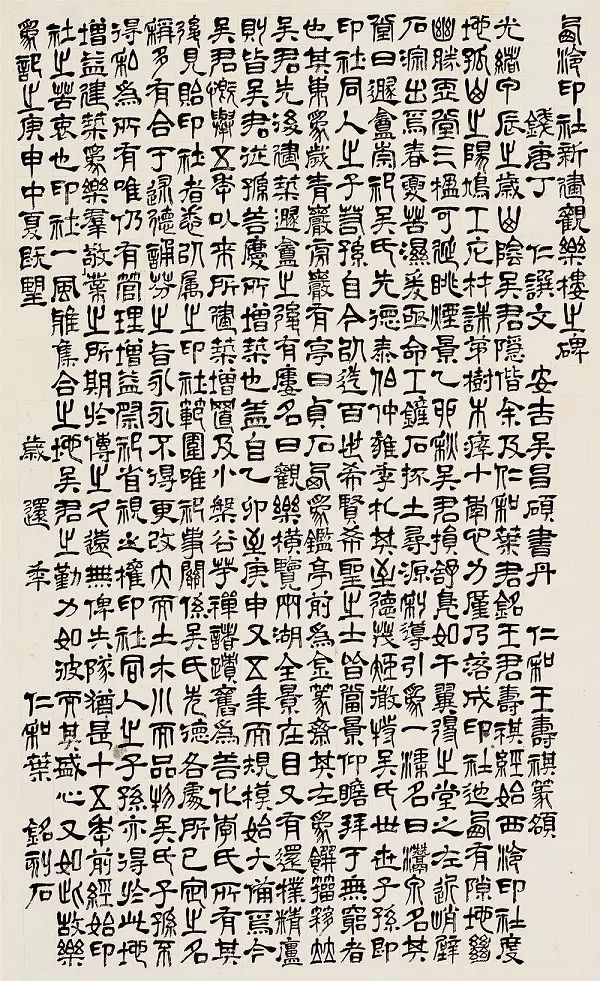 西泠印社新建觀樂樓之碑
錢唐丁 仁譔文 安吉吳昌碩書丹 仁和王壽祺篆額
光緒甲辰之歲山陰吳君隱偕余及仁和葉君銘王君壽祺經始西泠印社度
地孤山之陽鳩工庀材誅茅樹木瘏十年心力廑乃落成印社迤西有隙地
幽勝堊堂三楹可延眺煙景乙卯秋吳君損舒鳧如干翼得之堂之左近峭壁
石淙出焉春夏苦濕爰亟命工鏟石抒土尋源利導引爲一瀑名曰灊泉名其
堂曰遯盦崇祀吳氏先德泰伯仲雝季札其至德茂矩澂特吳氏世世子孫即
印社同人之子若孫自今以迄百世希賢希聖之士皆當景仰瞻拜于無窮者
也其東爲歲青巖巖有亭曰貞石西爲鑑亭前爲金篆齋其左爲籀簃竝
吳君先後建築遯盦之後有廔名曰觀樂橫覽兩湖全景在目又有還樸精廬
則皆吳君從孫善慶所增築也蓋自乙卯至庚申又五年而規模始大備焉今
吳君慨擧五年以來所建築增置及小盤谷芋禪諸蹟舊爲善化李氏所有其
後見貽印社者悉以屬之印社範圍唯祀事關係吳氏先德各處所已定之名
稱多有合于述德誦芬之旨永永不得更改大而土木小而品物吳氏子孫不
得私爲所有唯仍有管理增益祭祀省視之權印社同人之子孫亦得於此地
增益建築爲樂羣敬業之所期於傳之久遠無俾失隊猶是十五年前經始印
社之苦衷也印社一風雅集合之地吳君之勤力如彼而其盛心又如此故樂
爲記之庚申中夏旣朢 歲還年 仁和葉 銘刻石